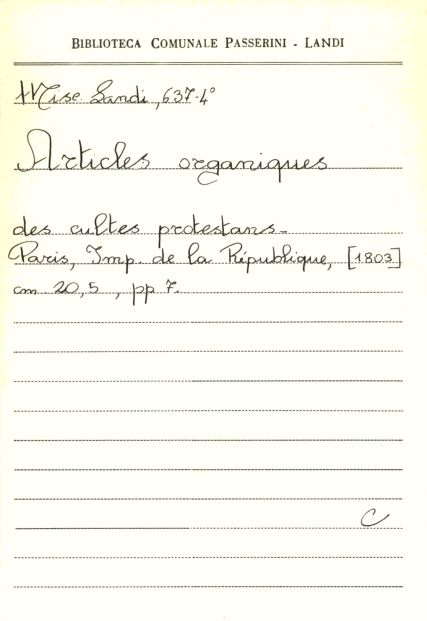 BIBLIOTECA COMUNALE PASSERINI - LANDI
Misc. Landi, 637-4°
Articles organiques
des cultes protestans -
Paris, Imp. de la République, [1803]
cm 20,5, pp 7.
C